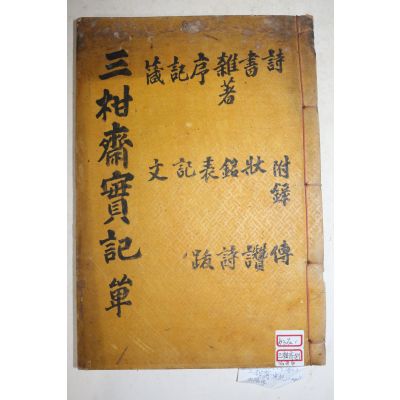 三柑齋實記 單
詩書雜著序記箴
附錄狀銘表記文
傳讚詩跋